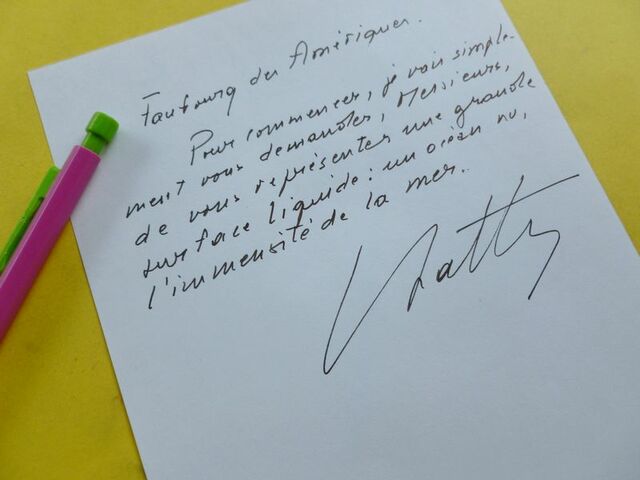 Faubourg des Amériques.
Pour commencer, je vais simple-
ment vous demander, Messieurs,
de vous représenter une grande
surface liquide : un océan nu,
l'immensité de la mer..